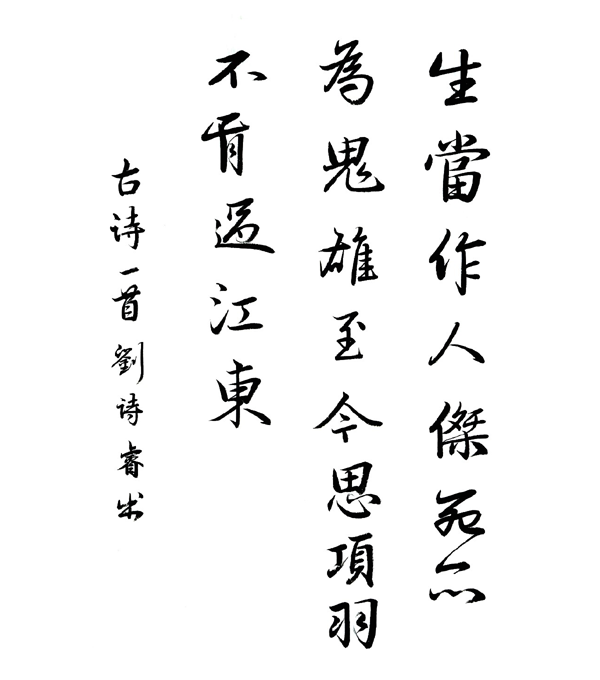 生當作人傑死亦
為鬼雄至今思項羽
不肯過江東
古诗一首劉诗睿书